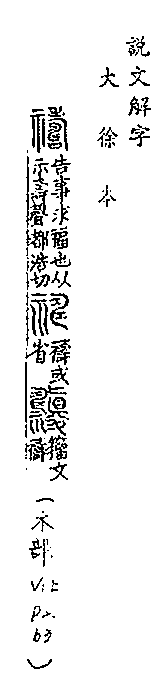 說文解字
大徐本
禱告事求福也从示壽聲都浩切𥘲禱或省𥜽籒文禱(示部 V1上 P2. b3)